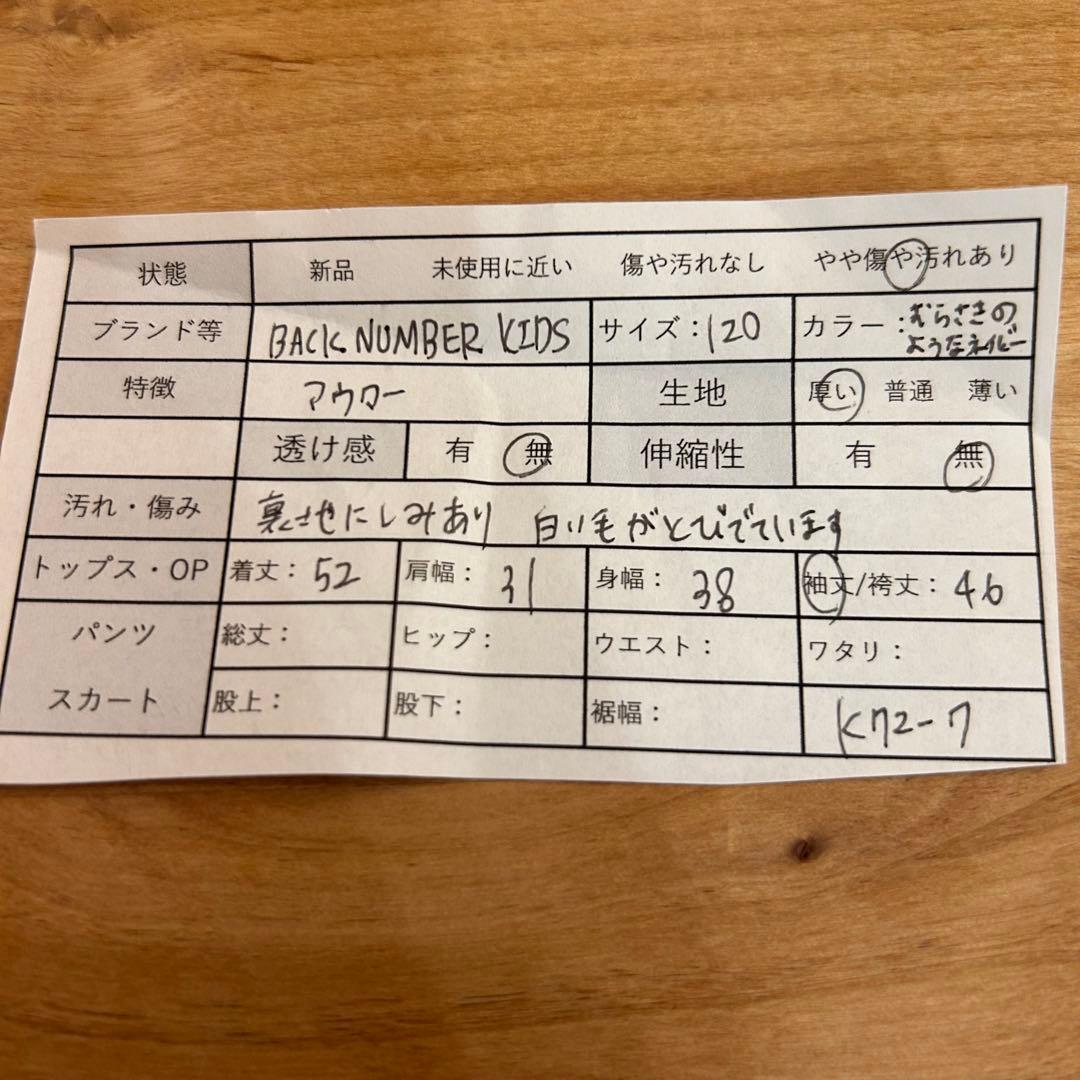 状態 新品 未使用に近い 傷や汚れなし やや傷や汚れあり
ブランド等 BACK NUMBER KIDS サイズ：120 カラー：むらさきの
ようなネイビー
特徴 アウター 生地 厚い 普通 薄い
透け感 有 無 伸縮性 有 無
汚れ・傷み 裏させにしみあり 白い毛がとびでています
トップス・OP 着丈：52 肩幅：31 身幅：38 袖丈/袴丈：46
パンツ 総丈： ヒップ： ウエスト： ワタリ：
スカート 股上： 股下： 裾幅： K72-7